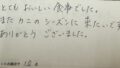 とても おいしい 食事でした。
また カニの シーズンに 来たいです
ありがとう ございました。